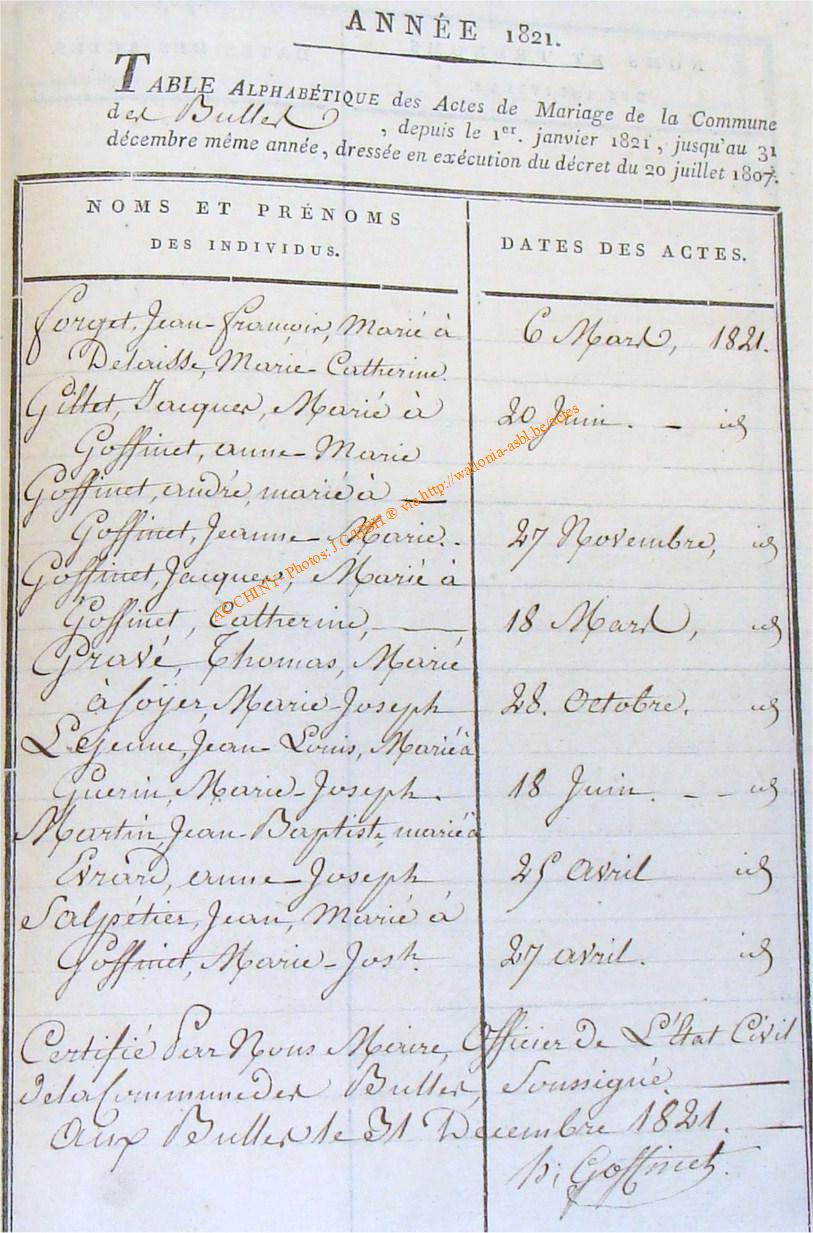 ANNÉE 1821.
TABLE ALPHABÉTIQUE des Actes de Mariage de la Commune
des Bulles, depuis le 1er. janvier 1821, jusqu'au 31
décembre même année, dressée en exécution du décret du 20 juillet 1807.
NOMS ET PRÉNOMS
DES INDIVIDUS.
DATES DES ACTES.
Forget, Jean-François, Marié à
Delaisse, Marie-Catherine.
6 Mars, 1821.
Gillet, Jacques, Marié à
Goffinet, anne-Marie
20 Juin. - id
Goffinet, andré, marié à —
Goffinet, Jeanne-Marie.
27 Novembre, id
Goffinet, Jacques, Marié à
Goffinet, Catherine, —
18 Mars, id
Gravé, Thomas, Marié
à Goÿer, Marie-Joseph
28. Octobre. id
Lejeune, Jean-Louis, Marié à
Guerin, Marie-Joseph.
18 Juin. - - id
Martin, Jean-Baptiste, marié à
Evrard, anne-Joseph
25 avril id
Salpétier, Jean, Marié à
Goffinet, Marie-Josh.
27 avril. id
Certifié Par Nous Maire, Officier de L'État Civil
de la Commune des Bulles, Soussigné. —
aux Bulles le 31 Décembre 1821. —
Goffinet.
ACCHINY - Photos: J.C. ® via http://wallonia-asbl.be/actes